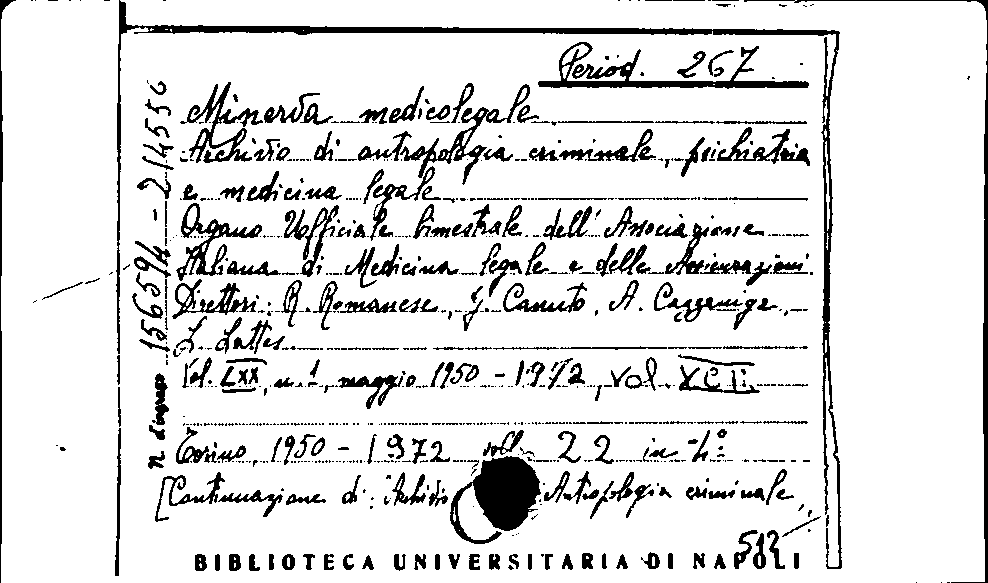 Period. 267
Minerva medicolegale
Archivio di antropologia criminale, psichiatria
e medicina legale
Organo Ufficiale bimestrale dell'Associazione
Italiana di Medicina legale e delle Assicurazioni
Direttori: R. Romanese, G. Canuto, A. Cazzaniga,
L. Lattes
Vol. LXX, n. 1, maggio 1950 - 1972, vol. XCII.
Torino, 1950 - 1972 voll. 22 in -4°
[Continuazione di: Archivio Antropologia criminale,,
512
BIBLIOTECA UNIVERSITARIA DI NAPOLI
n. d'ingresso 156594 - 214556